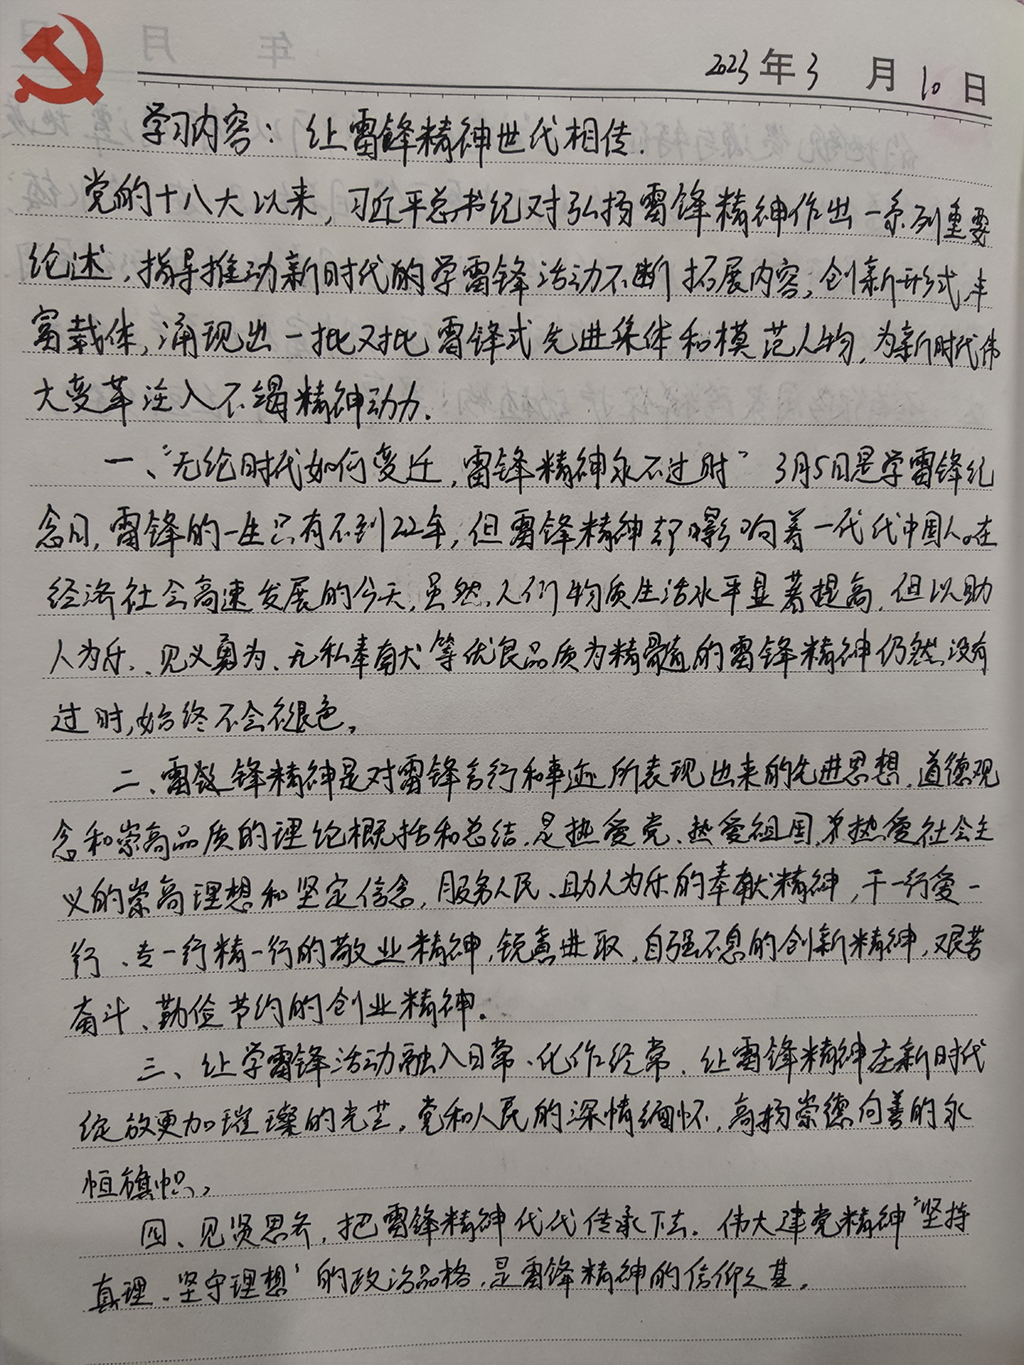 2023年3月10日
学习内容：让雷锋精神世代相传.
党的十八大以来，习近平总书纪对弘扬雷锋精神作出一系列重要
论述，指导推动新时代的学雷锋活动不断拓展内容，创新形式，丰
富载体，涌现出一批对批雷锋式先进集体和模范人物，为新时代伟
大变革注入不竭精神动力.
一、“无论时代如何变迁，雷锋精神永不过时” 3月5日是学雷锋纪
念日，雷锋的一生只有不到22年，但雷锋精神却影响着一代代中国人。在
经济社会高速发展的今天，虽然，人们物质生活水平显著提高，但以助
人为乐、见义勇为、无私奉献等优良品质为精髓的雷锋精神仍然没有
过时，始终不会褪色。
二、雷锋精神是对雷锋言行和事迹所表现出来的先进思想，道德观
念和崇高品质的理论概括和总结，是热爱党、热爱祖国、热爱社会主
义的崇高理想和坚定信念，服务人民、助人为乐的奉献精神，干一行爱一
行、专一行精一行的敬业精神，锐意进取，自强不息的创新精神，艰苦
奋斗、勤俭节约的创业精神。
三、让学雷锋活动融入日常、化作经常，让雷锋精神在新时代
绽放更加璀璨的光芒。党和人民的深情缅怀，高扬崇德向善的永
恒旗帜。
四、见贤思齐，把雷锋精神代代传承下去．伟大建党精神“坚持
真理、坚守理想”的政治品格，是雷锋精神的信仰之基。